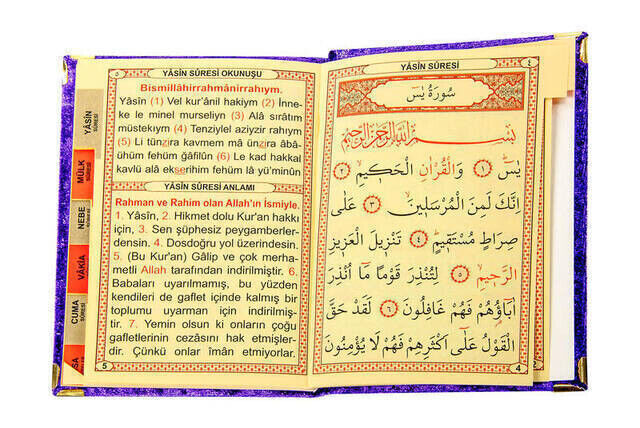 ٥
YÂSİN SÛRESİ OKUNUŞU
Bismillâhirrahmânirrahıym.
Yâsîn (1) Vel kur'ânil hakiym (2) İnne-
ke le minel murseliyn (3) Alâ sırâtım
müstekıym (4) Tenziylel aziyzir rahıym
(5) Li tünzira kavmem mâ ünzira âbâ-
ühüm fehüm gâfilûn (6) Le kad hakkal
kavlü alâ ekserihim fehüm lâ yü'minûn
YÂSİN SÛRESİ ANLAMI
Rahman ve Rahim olan Allah'ın İsmiyle.
1. Yâsîn, 2. Hikmet dolu Kur'an hakkı
için, 3. Sen şüphesiz peygamberler-
densin. 4. Dosdoğru yol üzerindesin.
5. (Bu Kur'an) Gâlip ve çok merha-
metli Allah tarafından indirilmiştir. 6.
Babaları uyarılmamış, bu yüzden
kendileri de gaflet içinde kalmış bir
toplumu uyarman için indirilmiş-
tir. 7. Yemin olsun ki onların çoğu
gafletlerinin cezasını hak etmişler-
dir. Çünkü onlar îmân etmiyorlar.
5
YÂSİN
SÛRESİ
MÜLK
SÛRESİ
NEBE
SÛRESİ
VÂKIA
SÛRESİ
CUMA
SÛRESİ
SA
YÂSİN SÛRESİ
٤
سُورَةُ يٰسٓ
بِسْمِ اللهِ الرَّحْمٰنِ الرَّحِيمِ
يٰسٓ ﴿١﴾ وَالْقُرْاٰنِ الْحَكِيمِ ﴿٢﴾
اِنَّكَ لَمِنَ الْمُرْسَلِينَ ﴿٣﴾ عَلٰى
صِرَاطٍ مُسْتَقِيمٍ ﴿٤﴾ تَنْزِيلَ الْعَزِيزِ
الرَّحِيمِ ﴿٥﴾ لِتُنْذِرَ قَوْمًا مَٓا اُنْذِرَ
اٰبَٓاؤُ۬هُمْ فَهُمْ غَافِلُونَ ﴿٦﴾ لَقَدْ حَقَّ
الْقَوْلُ عَلٰٓى اَكْثَرِهِمْ فَهُمْ لَا يُؤْمِنُونَ
4